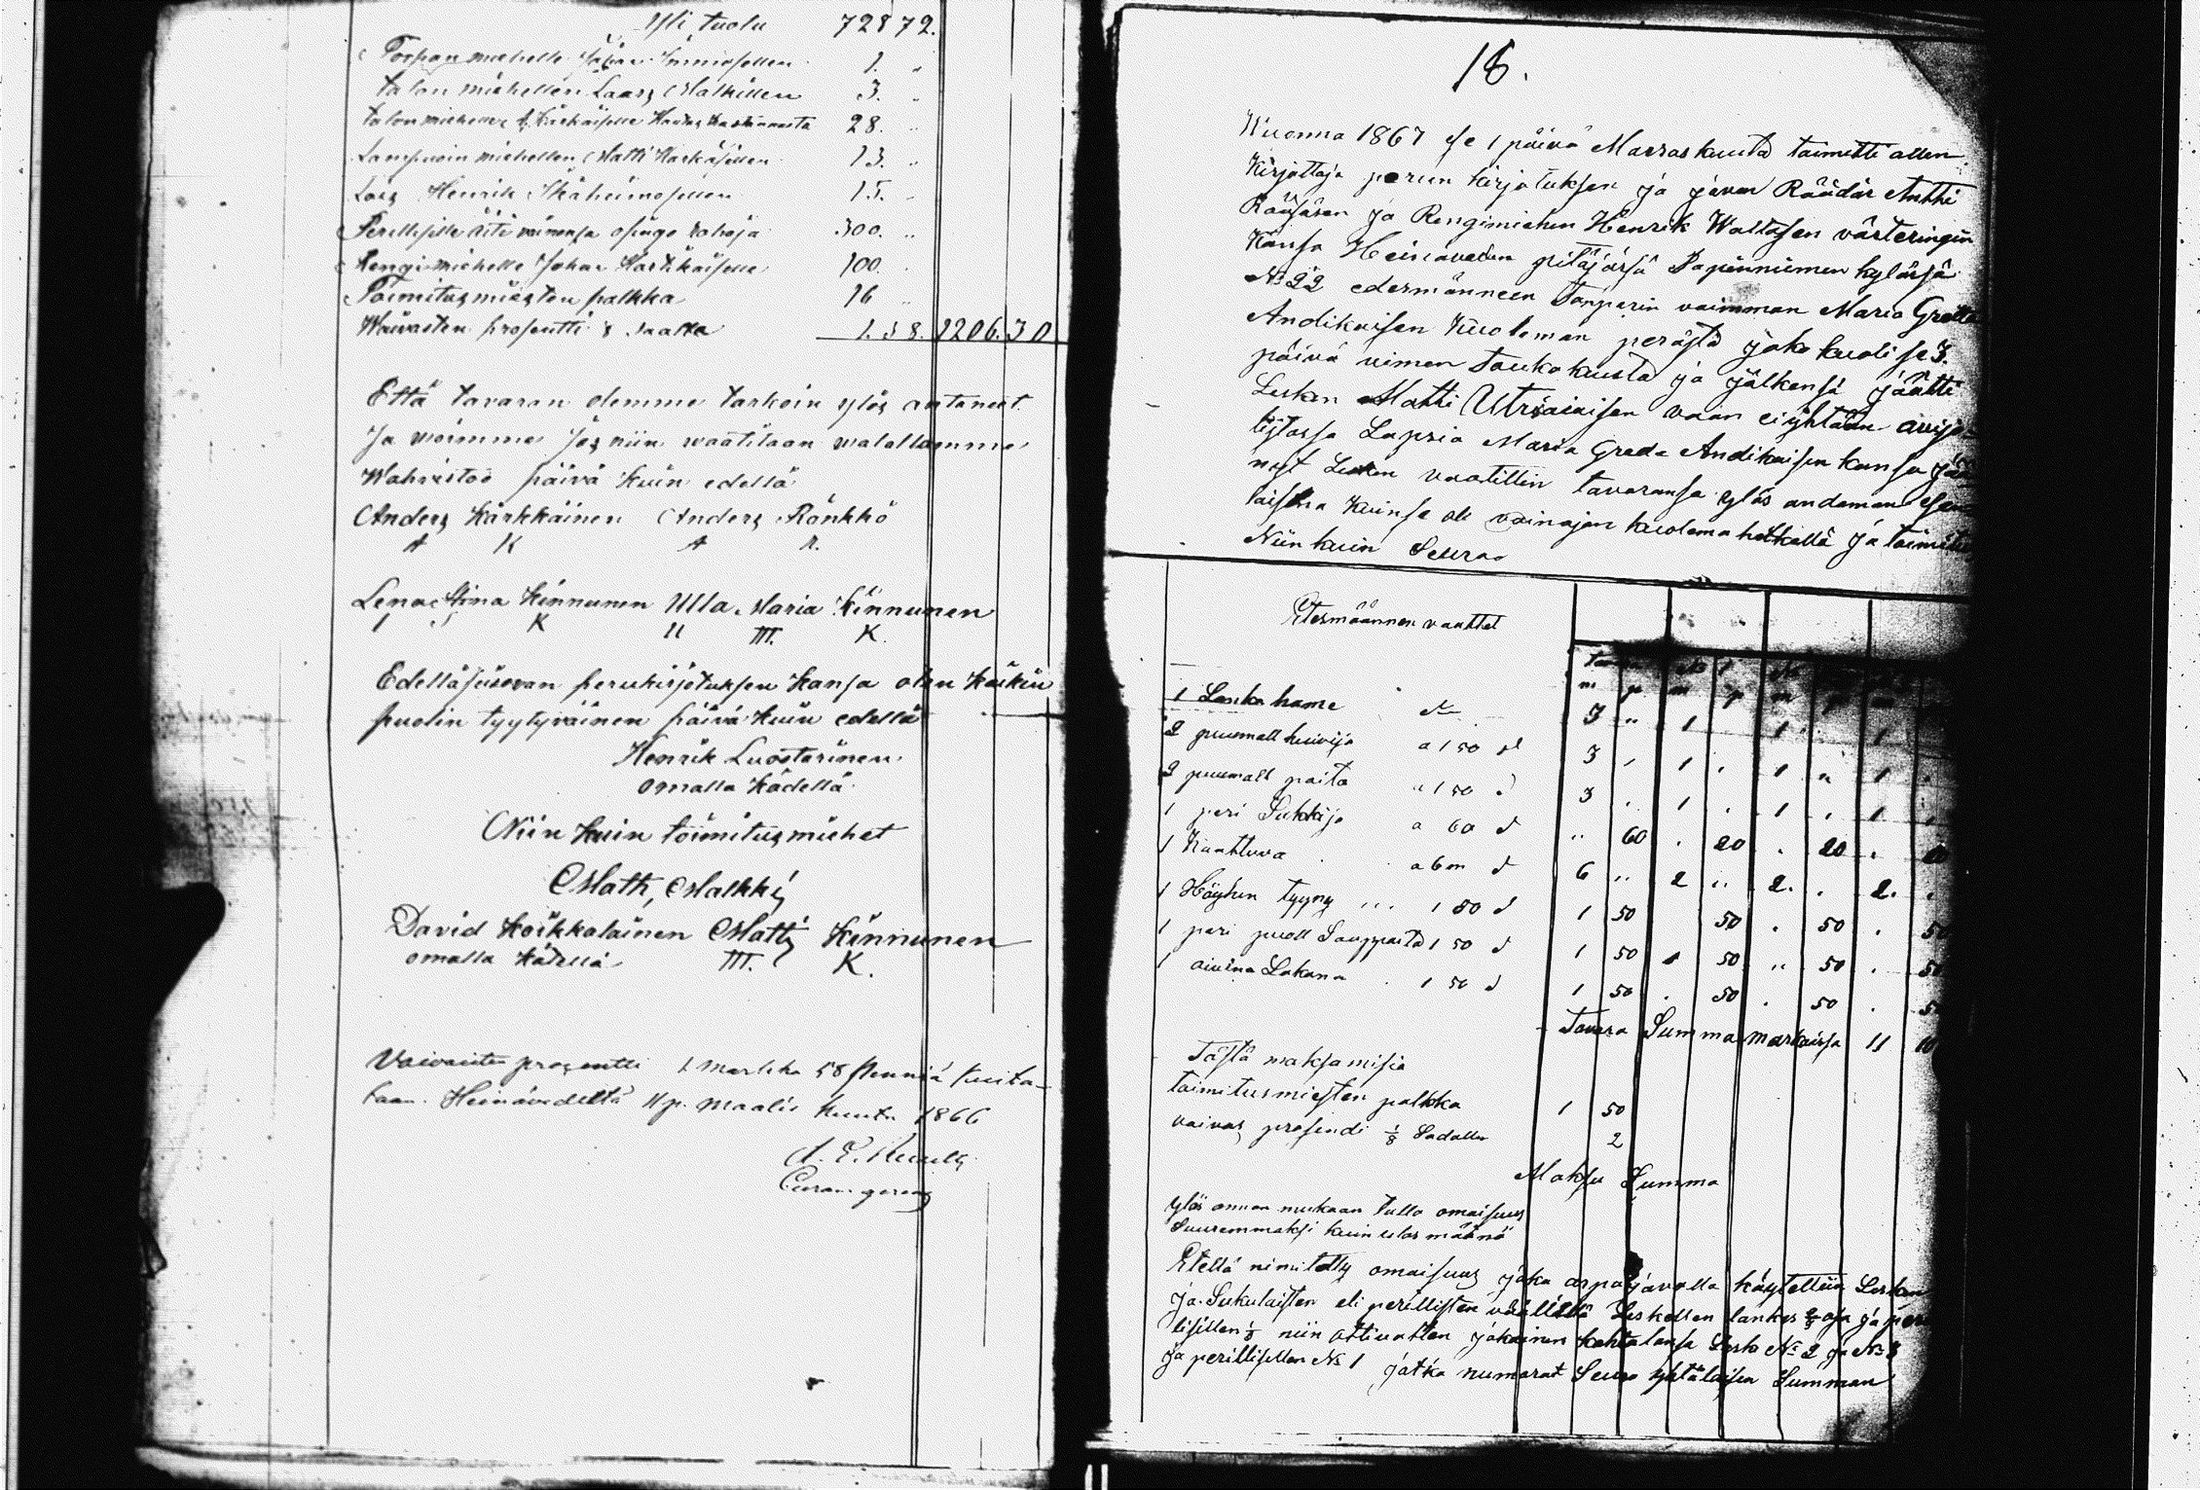 Yli tuolu 72872.
Torpan miehelle 1. "
talon miehellen Laars Malkillen 3. "
talon miehelle A. Kärkäiselle 28. "
Lampuoin miehellen Matti Karkäisellen 13. "
Lars Henrik Ikäheimosellen 15. "
Perillisille äiti vainonsa osingo rahoja 300. "
Rengi miehelle Johan Karkkaiselle 100.
Toimitusmiesten palkka 16 "
Waivasten prosentti 1/8 saalta 1. 58. 1206. 30
Että tavaran olemme tarkoin ylös antaneet
Ja woimme jos niin waatitaan walallamme
Wahvistaa päivä kuin edellä
Anders Kärkkäinen Anders Rönkkö
A K A R.
Lena Stina Kinnunen Ulla Maria Kinnunen
L S K U M. K.
Edelläseisovan perukirjotuksen kansa olen kaikin
puolin tyytyväinen päivä kuin edellä
Henrik Luostarinen
omalla kädellä
Niin kuin toimitusmiehet
Matts Malkki
David Koikkalainen Matts Kinnunen
omalla kädellä M. K.
Vaivasten prosentti 1 markka 58 penniä kuita-
taan. Heinävedeltä 11 p. Maalis kuuta 1866
16.
Wuonna 1867 se 1 päivä Marraskuuta toimitti allen
Kirjottaja perun kirjotuksen ja javon Räädär Antti
Räisäsen ja Rengimiehen Henrik Waltasen värteringin
Kansa Heinäveden pitäjäsä Papinniemen kyläsä
No 22 edesmänneen Torpparin vaimman Maria Greeta
Andikaisen Kuoleman peräsTä joka kuoli se 3.
päivä viimen Toukokuuta ja jälkensä jäätti
Lesken Matti Utriaiaisen vaan ei yhtään avijo-
liitossa Lapsia Maria Greda Andikaisen kansa jä
nyt Lesken vaatittin tavaransa ylös andaman
laisena kuinse oli vainajan kuolema hetkellä ja toimite
Niin kuin Seuraa
Etesmäännen vaattet
1 Lanka hame 3 " 1 1 1
2 puumall huivija a 1 50 3 , 1 , 1 " 1 ,
2 puumall paita a 1 50 3 .. 1 . 1 , 1 ,
1 peri Sukkija a 60 " 60 . 20 . 20 .
1 Kaahtuva a 6 m 6 " 2 " 2. . 2. .
1 Höyhen tyyny 1 50 1 50 50 . 50 . 50
1 peri puoll Saappaita 1 50 1 50 50 " 50 . 50
1 aivina Lakana 1 50 1 50 . 50 . 50 . 50
Tavara Summa markaissa 11 10
Tästä maksamisia
toimitusmiesten palkka 1 50
vaivas prosendi 1/8 Sadalla 2
Maksu Summa
ylös annon mukaan tullo omaisuus
Suuremmaksi kuin ulos määnä
Etellä nimitetty omaisuus joka arpajavolla käytettiin Lesken
ja Sukulaisten eli perillisten väälillä Leskellen lankes 2/3 osa ja peri
lisillen 1/3 niin ottivatten jokainen kohtalansa Leski No 2 ja No 3
ja perillisillen No 1 jotka numarat Seura yhtäläisen Summan